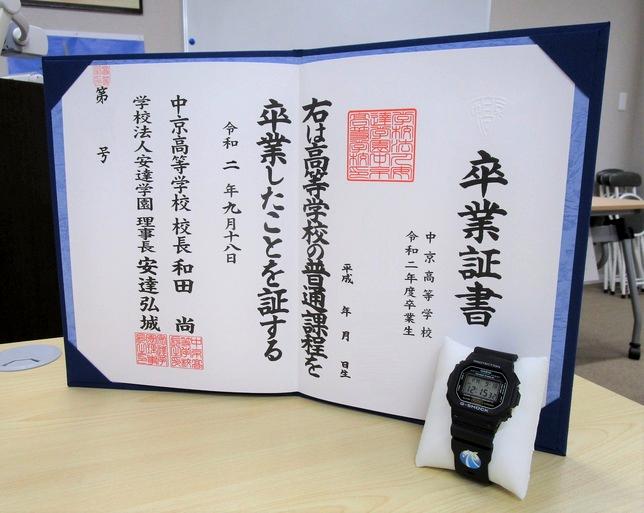 卒業証書
中京高等学校
令和二年度卒業生
平成 年 月 日生
右は高等学校の普通課程を
卒業したことを証する
令和 二 年 九 月 十八 日
中京高等学校 校長 和田 尚
学校法人安達学園 理事長 安達弘城
第 号
PROTECTION
CASIO
G-SHOCK